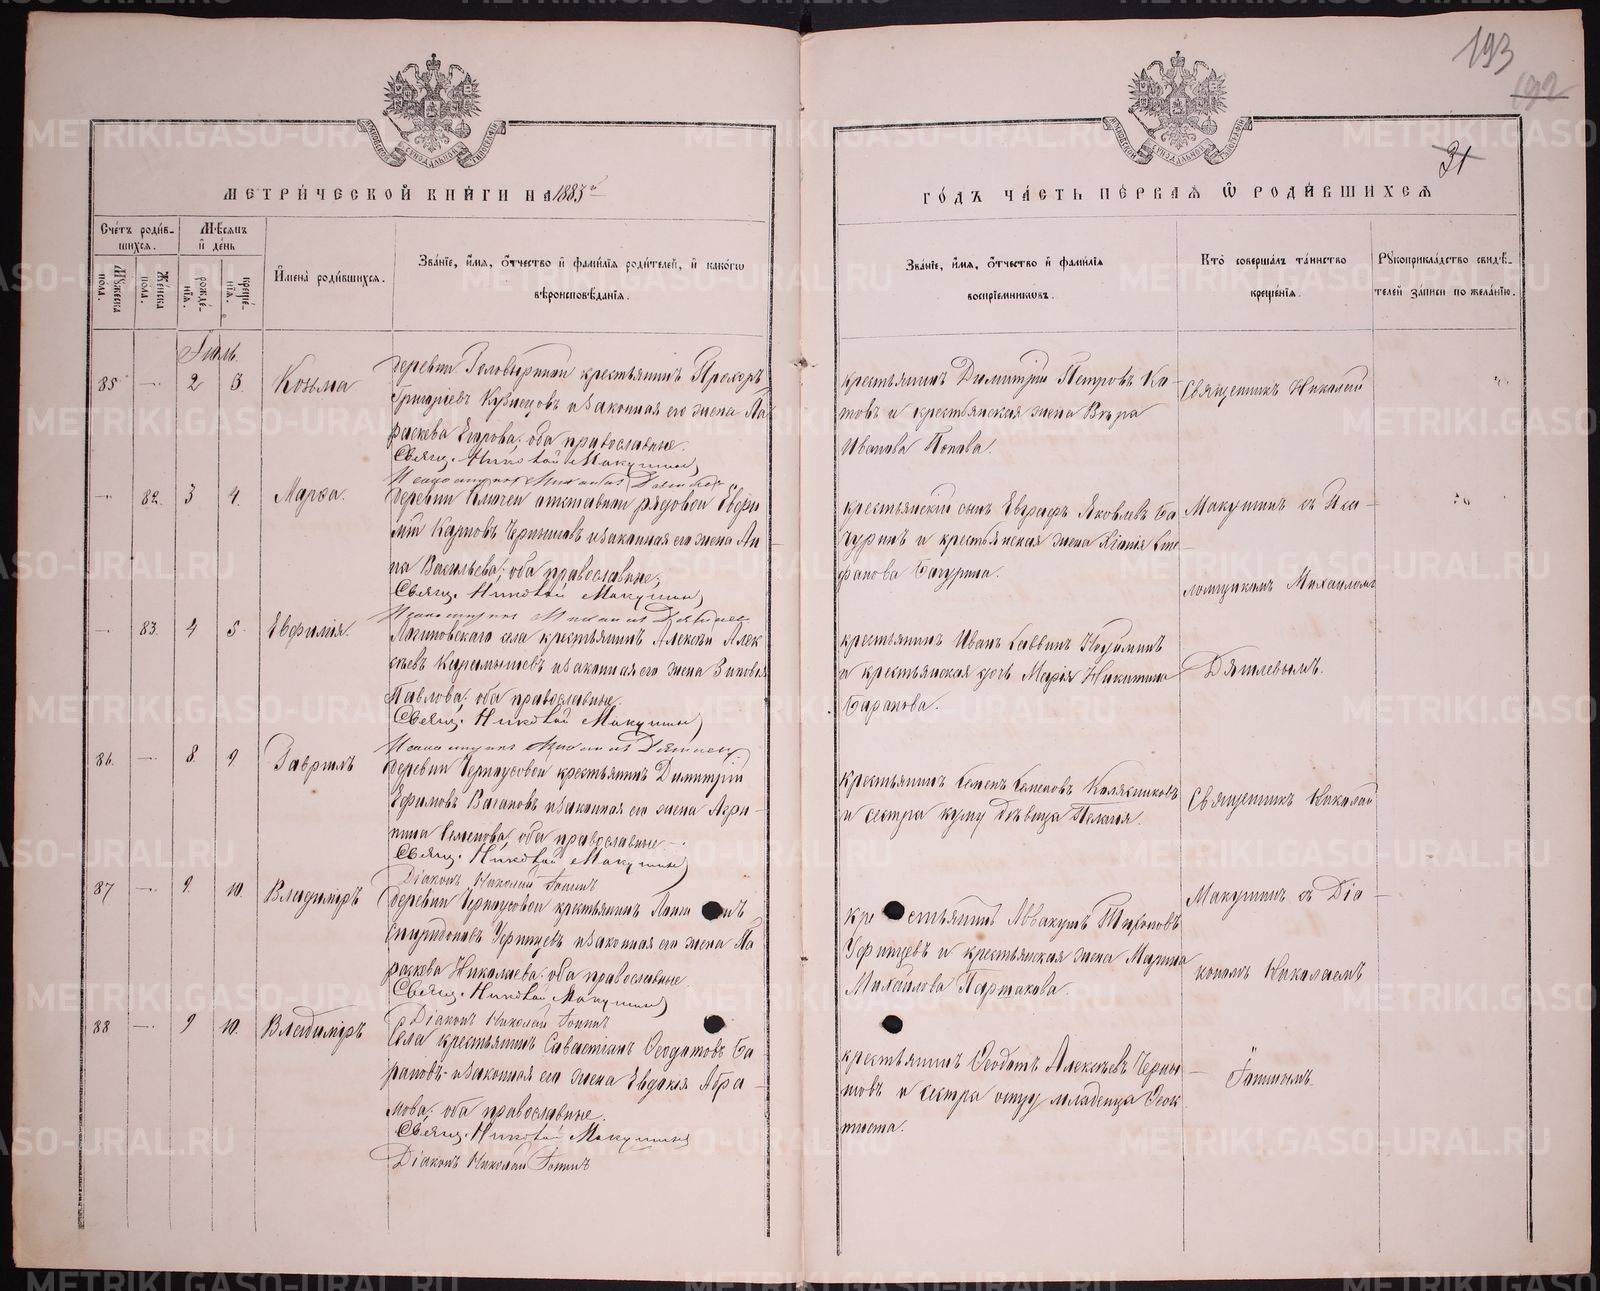 193
192
31
МЕТРИ́ЧЕСКОЙ КНИ́ГИ НА 1883й
ГО́ДЪ ЧА́СТЬ ПЕ́РВАЯ Ѿ РОДИ́ВШИХСЯ
Сче́тъ роди́в-
шихся.
Мѣсяцъ
и҆ де́нь
Му́жеска
пола.
Же́нска
пола.
рожде́-
нїѧ.
креще́-
нїѧ.
И҆мена̀ роди́вшихся.
Зва́нїе, и҆́мѧ, ѻ҆́тчество и҆ фами́лїѧ роди́телей, и҆ како́гѡ
вѣроисповѣ́данїѧ.
Зва́нїе, и҆́мѧ, ѻ҆́тчество и҆ фами́лїѧ
воспрїе́мниковъ.
Кто̀ соверша́лъ та́инство
креще́нїѧ.
Рꙋкоприкла́дство свидѣ́-
телей за́писи по жела́нїю.
Іюль
85 — 2 3 Козьма
деревни Головыриной крестьянинъ Прохоръ
Григорьевъ Кузнецовъ и законная его жена Па
раскева Егорова; оба православные.
Свящ. Николай Макушинъ
Псаломщикъ Михаилъ Дягилевъ
крестьянинъ Димитрій Петровъ Ки-
товъ и крестьянская жена Вѣра
Иванова Попова.
Священникъ Николай
— 82. 3 4. Марѳа.
деревни Ключей отставной рядовой Евфи
мій Карповъ Чернышовъ и законная его жена Ан-
на Васильева; оба православные;
Свящ. Николай Макушинъ
Псаломщикъ Михаилъ Дягилевъ
крестьянскій сынъ Евграфъ Яковлевъ Ба
чуринъ и крестьянская жена Ксенія Сте-
фанова Бачурина.
Макушинъ съ Пса-
ломщикомъ Михаиломъ
— 83. 4 5. Евфимія.
Логиновскаго села крестьянинъ Алексѣй Алек
сѣевъ Карамышевъ и законная его жена Зиновія
Павлова; оба православные.
Свящ. Николай Макушинъ
Псаломщикъ Михаилъ Дягилевъ
крестьянинъ Иванъ Саввинъ
и крестьянская дочь Марія Никитина
Баранова.
Дягилевымъ.
86. — 8. 9. Гавріилъ
деревни Черноусовой крестьянинъ Димитрій
Ефимовъ Вагановъ и законная его жена Агри-
пина Семенова; оба православные.
Свящ. Николай Макушинъ
Діаконъ Николай Топинъ
крестьянинъ Семенъ Семеновъ Колясниковъ
и сестра куму дѣвица Пелагія.
Священникъ Николай
87 — 9. 10. Владиміръ
деревни Черноусовой крестьянинъ
Спиридоновъ Уфинцевъ и законная его жена Па
раскева Николаева; оба православные.
Свящ. Николай Макушинъ
Діаконъ Николай Топинъ
крестьянинъ Аввакумъ Тихоновъ
Уфинцевъ и крестьянская жена Марина
Михайлова Партакова.
Макушинъ съ Діа-
кономъ Николаемъ
88 — 9 10. Владиміръ
Села крестьянинъ Савастіанъ Ѳеодотовъ Ба-
рановъ и законная его жена Евдокія Абра-
мова; оба православные.
Свящ. Николай Макушинъ
Діаконъ Николай Топинъ
крестьянинъ Ѳеодотъ Алексѣевъ Черны-
шовъ и сестра отцу младенца Ѳеок
тиста.
Топинымъ.